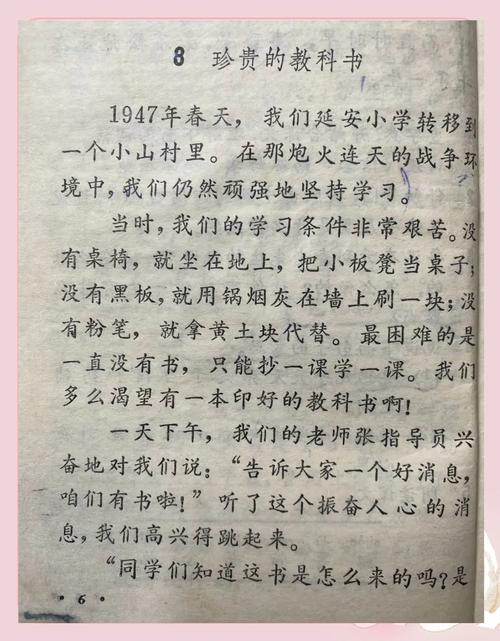 8 珍贵的教科书
1947年春天，我们延安小学转移到
一个小山村里。在那炮火连天的战争环
境中，我们仍然顽强地坚持学习。
当时，我们的学习条件非常艰苦。没
有桌椅，就坐在地上，把小板凳当桌子；
没有黑板，就用锅烟灰在墙上刷一块；没
有粉笔，就拿黄土块代替。最困难的是
一直没有书，只能抄一课学一课。我们
多么渴望有一本印好的教科书啊！
一天下午，我们的老师张指导员兴
奋地对我们说：“告诉大家一个好消息，
咱们有书啦！”听了这个振奋人心的消
息，我们高兴得跳起来。
“同学们知道这书是怎么来的吗？是
·6·